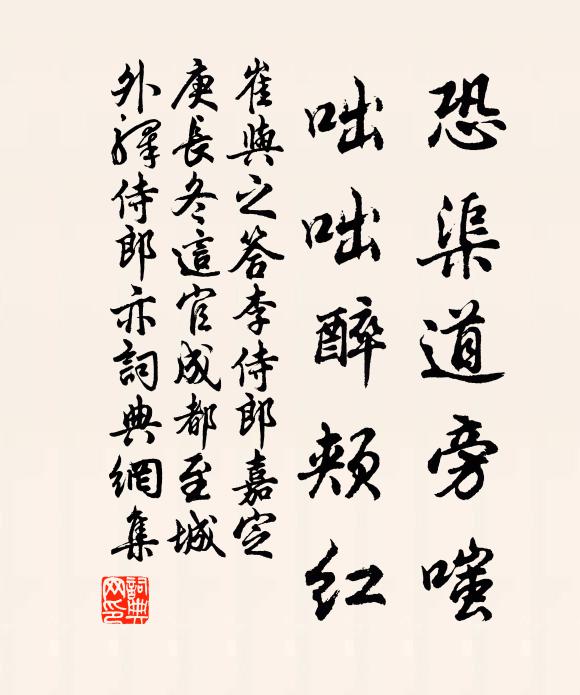 恐渠道旁嗤
咄咄醉頰紅
崔與之答李侍郎嘉定
庚長冬這官成都至城
外驛侍郎亦詞典網集
詞典
网印